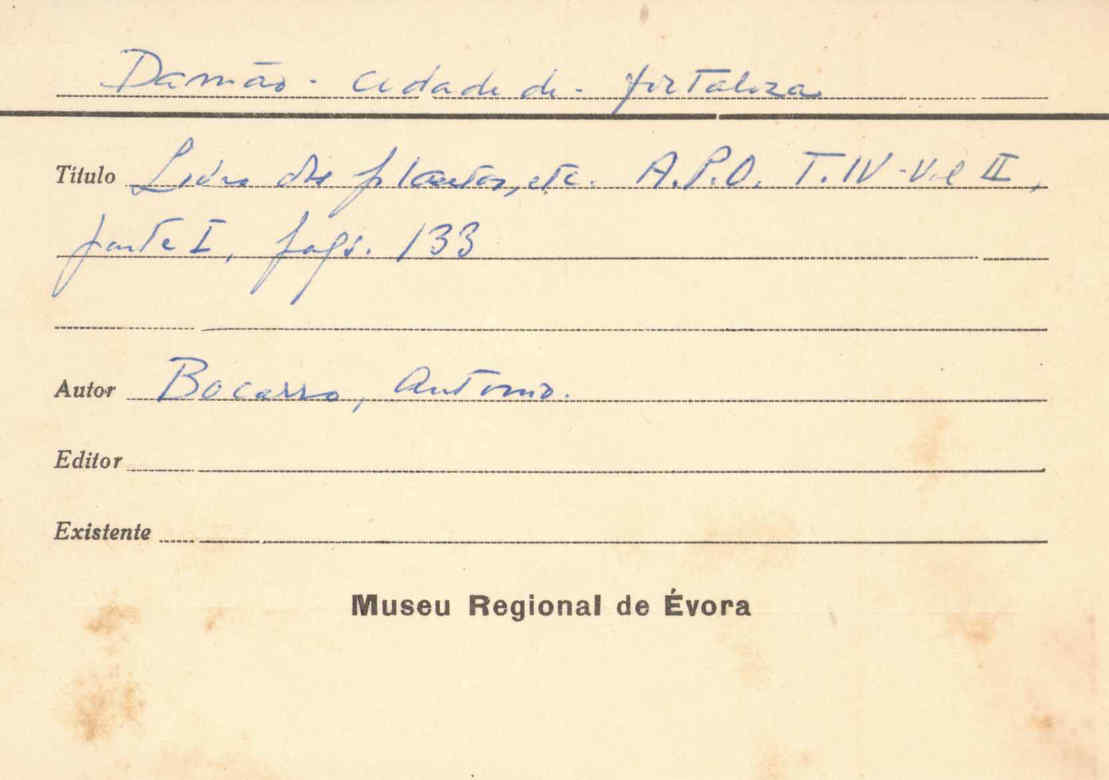 Damão - cidade de - fortaleza
Título Livro das plantas, etc. A.P.O. T.IV - Vol II,
parte I, pags. 133
Autor Bocarro, Antonio.
Editor
Existente
Museu Regional de Évora